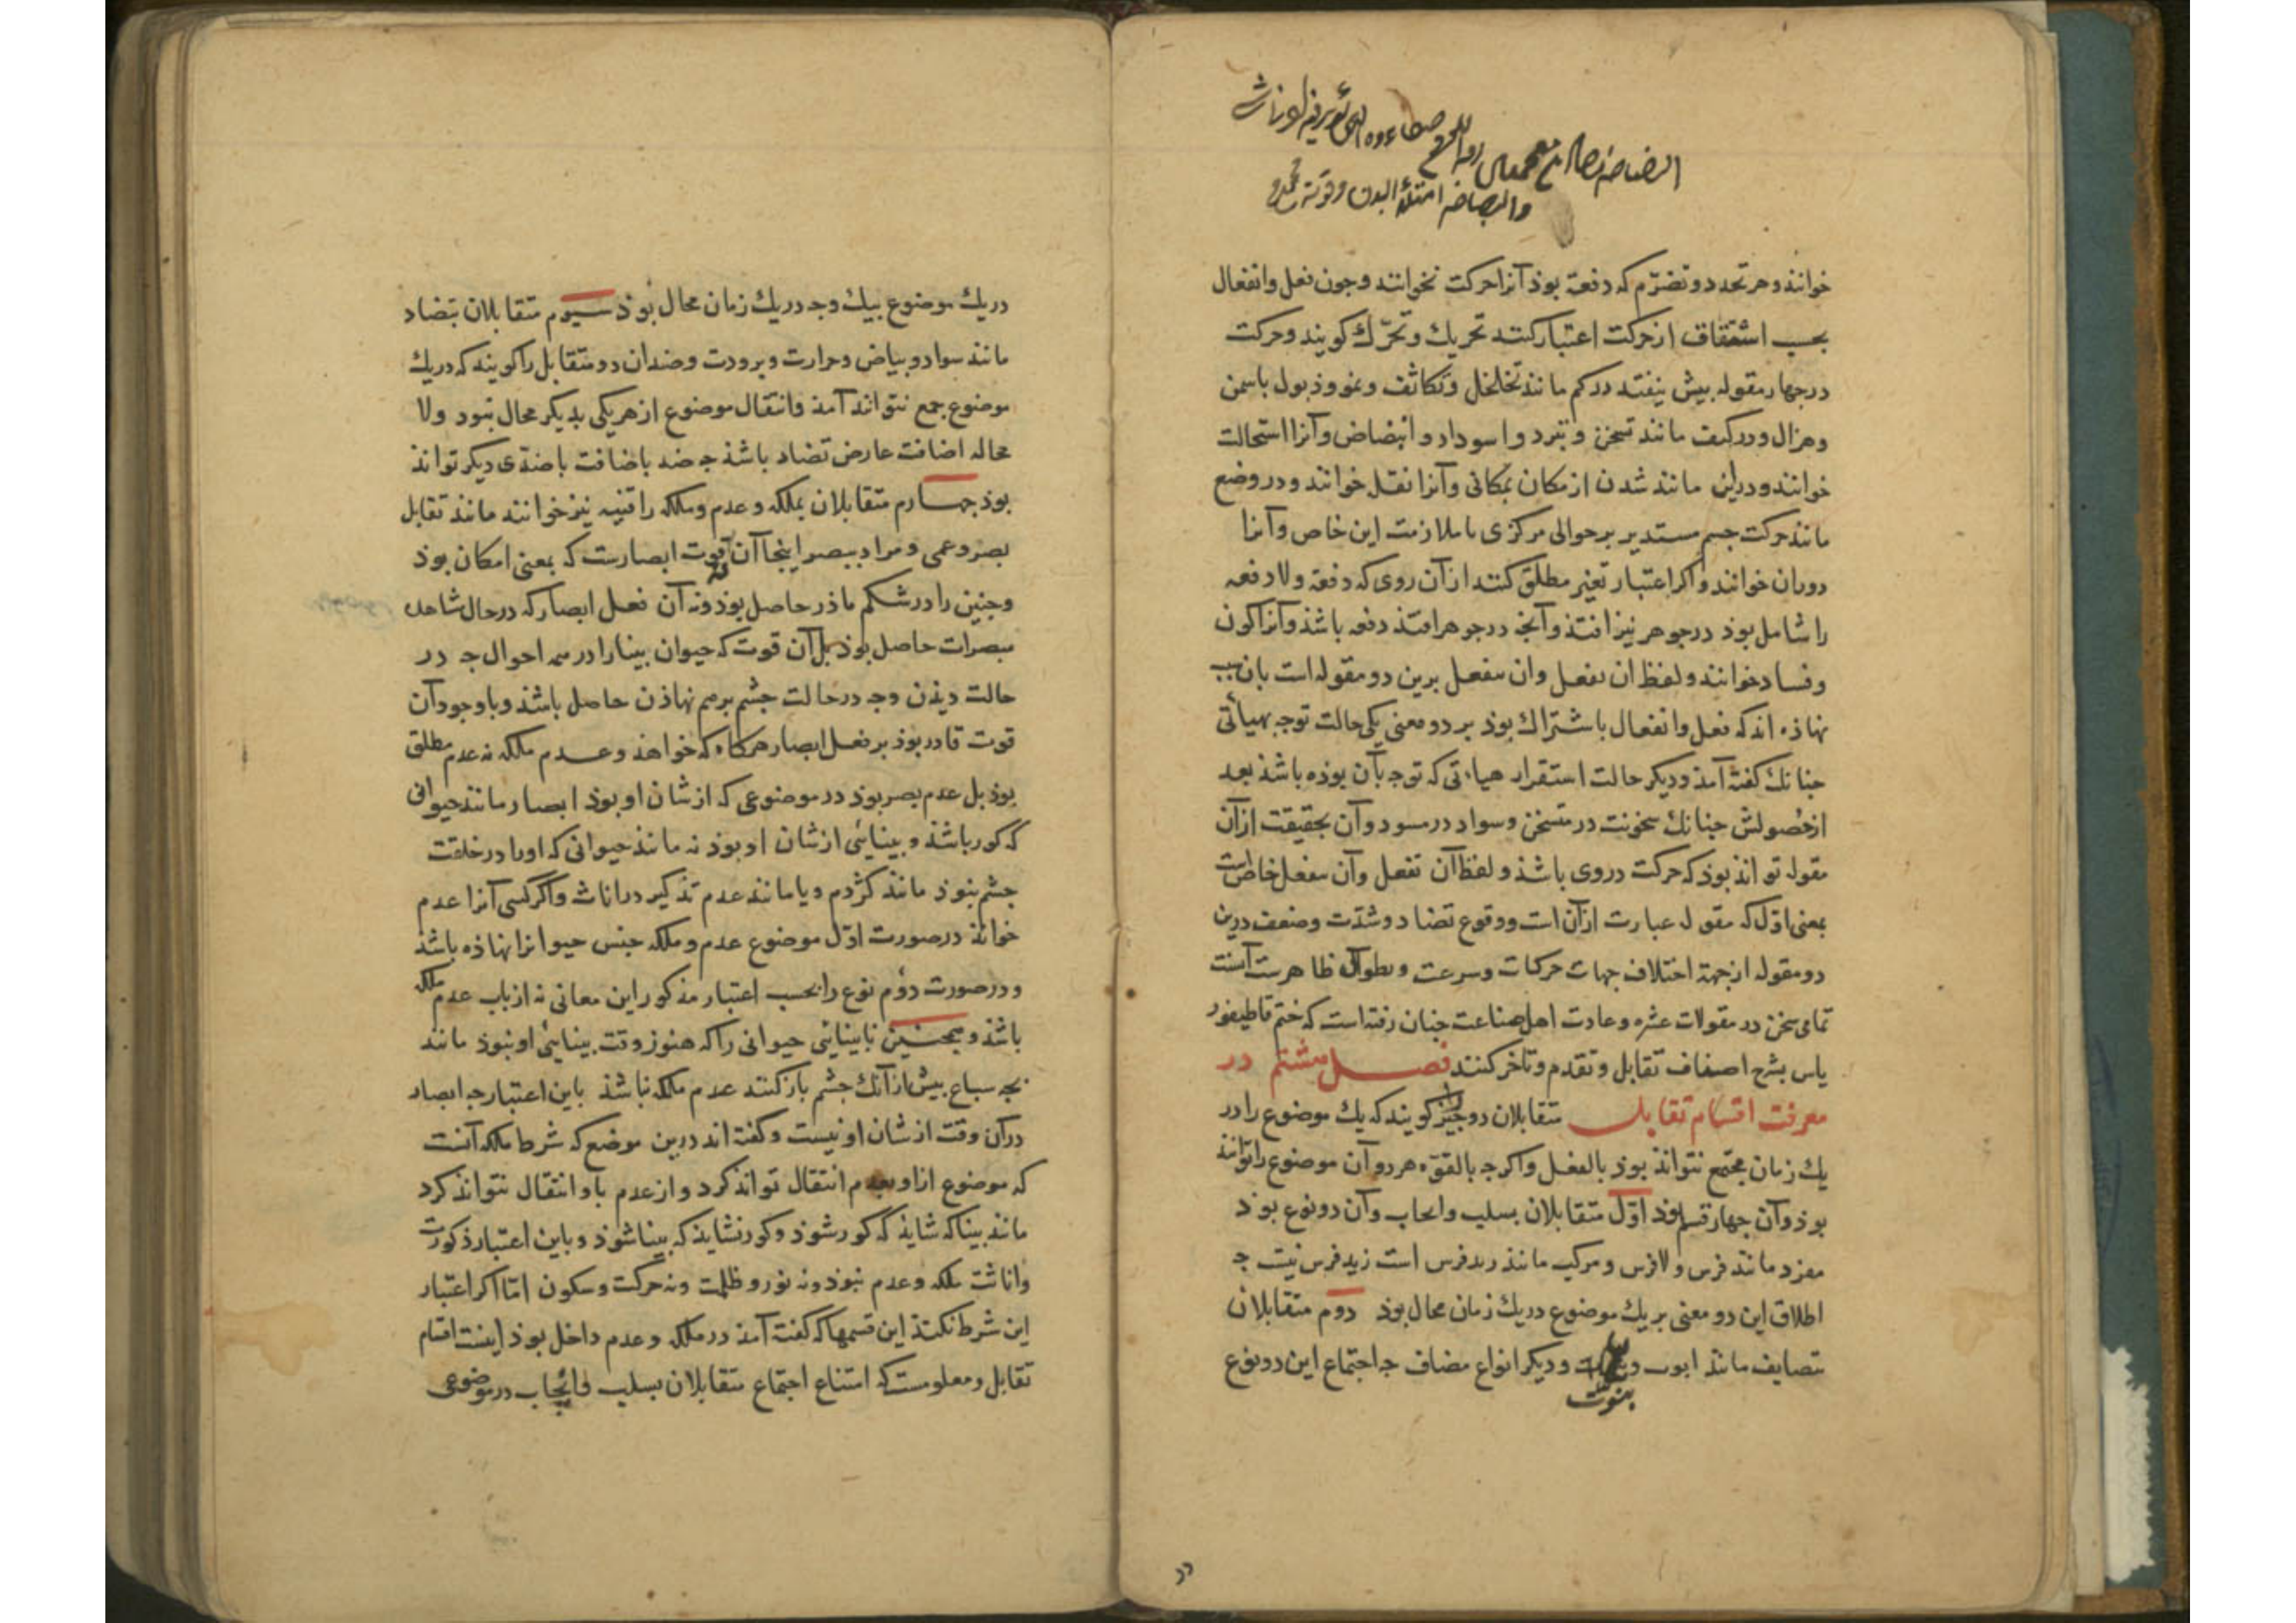 خوانند و هر تجدد و تصرّم که دفعة بوذ آنرا حرکت نخوانند و جون فعل و انفعال
بحسب اشتقاق از حرکت اعتبار کنند تحریك و تحرّك کویند و حرکت
در جهار مقوله بیش نیفتد در کم مانند تخلخل و تکاثف و نمو و ذبول یا سمن
و هزال و در کیف مانند تسخن و تبرد و اسوداد و ابیضاض و آنرا استحالت
خوانند و در این مانند شدن از مکان بمکانی و آنرا نقل خوانند و در وضع
مانند حرکت جسم مستدیر بر حوالی مرکزی با ملازمت این خاص و آنرا
دوران خوانند و اکر اعتبار تغیر مطلق کنند از آن روی که دفعة و لا دفعه
را شامل بوذ در جوهر نیز افتذ و آنجه در جوهر افتذ دفعه باشذ و آنرا کون
و فساد خوانند و لفظ ان یفعل و ان ینفعل برین دو مقوله است بان سبب
نهاذه اند که فعل و انفعال باشتراك بوذ بر دو معنی یکی حالت توجه بهیأتی
جنانك کفته آمذ و دیکر حالت استقرار هیأتی که توجه بآن بوذه باشذ بعد
از حصولش جنانك سخونت در متسخن و سواد در مسود و آن بحقیقت از آن
مقوله تواند بوذ که حرکت در وی باشذ و لفظ آن یفعل و آن ینفعل خاص است
بمعنی اوّل که مقوله عبارت از آن است و وقوع تضاد و شدّت و ضعف درین
دو مقوله از جهة اختلاف جهات حرکات و سرعت و بطؤ آن ظاهرست اینست
تمامی سخن در مقولات عشره و عادت اهل صناعت جنان رفته است که ختم قاطیغور
یاس بشرح اصناف تقابل و تقدم و تاخر کنند فصل هشتم در
معرفت اقسام تقابل متقابلان دو جیز را کویند که یك موضوع را در
یك زمان مجتمع نتواند بوذ بالفعل و اکر جه بالقوّه هر دو آن موضوع را تواند
بوذ و آن جهار قسم بوذ اوّل متقابلان بسلب و ایجاب و آن دو نوع بوذ
مفرد مانند فرس و لا فرس و مرکب مانند زید فرس است زید فرس نیست جه
اطلاق این دو معنی بر یك موضوع در یك زمان محال بوذ دوم متقابلان
تضایف مانند ابوت و و دیکر انواع مضاف جه اجتماع این دو نوع
بنوت
در یك موضوع بیك وجه در یك زمان محال بوذ سیوم متقابلان بتضاد
مانند سواد و بیاض و حرارت و برودت و ضدان دو متقابل را کویند که در یك
موضوع جمع نتواند آمد و انتقال موضوع از هر یکی بدیکر محال نبود و لا
محاله اضافت عارض تضاد باشذ جه ضد باضافت با ضدّی دیکر تواند
بوذ جهارم متقابلان بملکه و عدم و ملکه را قنیه نیز خوانند مانند تقابل
بصر و عمی و مراد ببصر اینجا نه آن قوت ابصارست که بمعنی امکان بوذ
و جنین را در شکم ماذر حاصل بوذ و نه آن فعل ابصار که در حال مشاهده
مبصرات حاصل بوذ بل آن قوت که حیوان بینا را در همه احوال جه در
حالت دیذن وجه در حالت جشم بر هم نهاذن حاصل باشذ و با وجود آن
قوت قادر بوذ بر فعل ابصار هرکاه که خواهذ و عدم ملکه نه عدم مطلق
بوذ بل عدم بصر بوذ در موضوعی که از شان او بوذ ابصار مانند حیوانی
که کور باشذ و بینائی از شان او بوذ نه مانند حیوانی که او را در خلقت
جشم نبوذ مانند کژدم و یا مانند عدم تذکیر در اناث و اکر کسی آنرا عدم
خوانذ در صورت اوّل موضوع عدم و ملکه جنس حیوانرا نهاذه باشذ
و در صورت دوّم نوع را بحسب اعتبار مذکور این معانی نه از باب عدم ملکه
باشذ و همجنین نابینایی حیوانی را که هنوز وقت بینائی او نبوذ مانند
بجه سباع بیش از آنك جشم باز کنند عدم ملکه نباشذ باین اعتبار جه ابصار
در آن وقت از شان او نیست و کفته اند درین موضع که شرط ملکه آنست
که موضوع ازا و بعدم انتقال تواند کرد و از عدم باو انتقال نتواند کرد
مانند بینا که شایذ که کور شوذ و کور نشایذ که بینا شوذ و باین اعتبار ذکورت
و اناثت ملکه و عدم نبوذ و نه نور و ظلمت و نه حرکت و سکون امّا اکر اعتبار
این شرط نکنند این قسمها که کفته آمذ در ملکه و عدم داخل بوذ اینست اقسام
تقابل و معلومست که امتناع اجتماع متقابلان بسلب و ایجاب در موضوعی